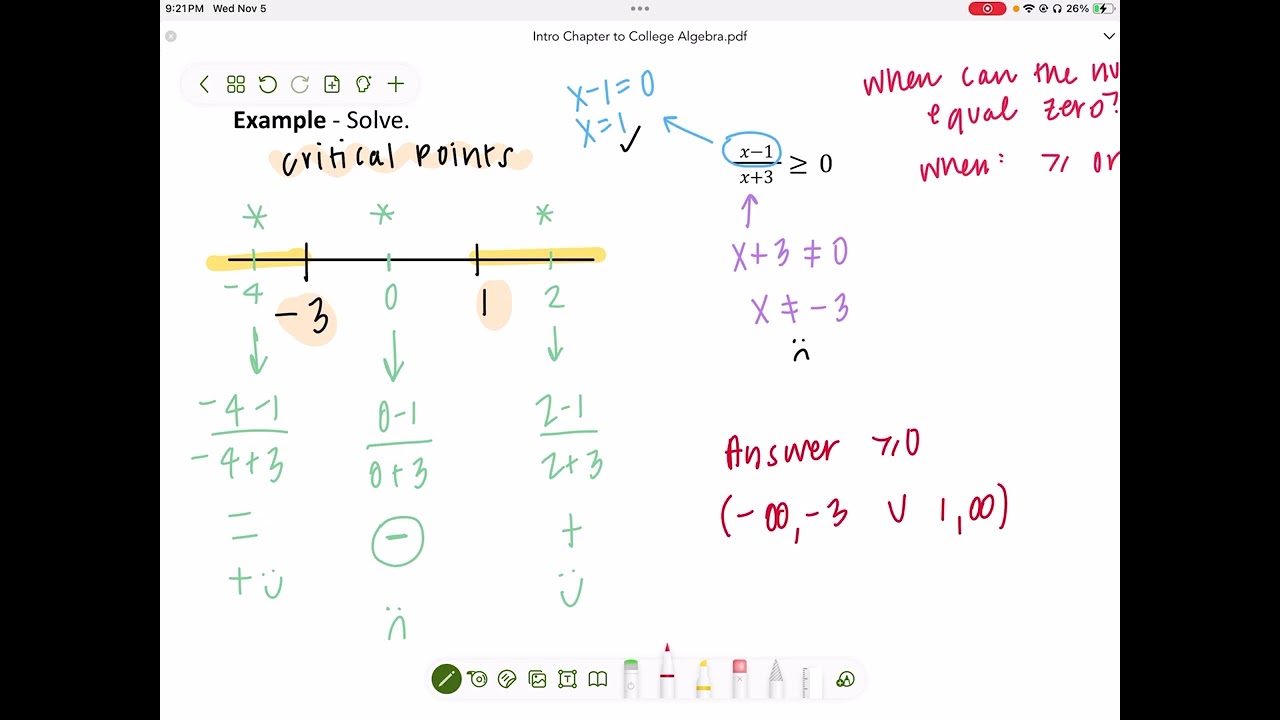 9:21 PM Wed Nov 5
26%
Intro Chapter to College Algebra.pdf
Example - Solve.
critical points
x-1=0
x=1 ✓
x−1
x+3
≥ 0
when can the
equal zero?
when: ≥ or
* * *
-4 -3 0 1 2
x+3 ≠ 0
x ≠ -3
-4-1
-4+3
=
+
0-1
0+3
-
2-1
2+3
+
Answer ≥0
(-∞,-3 ∪ 1,∞)